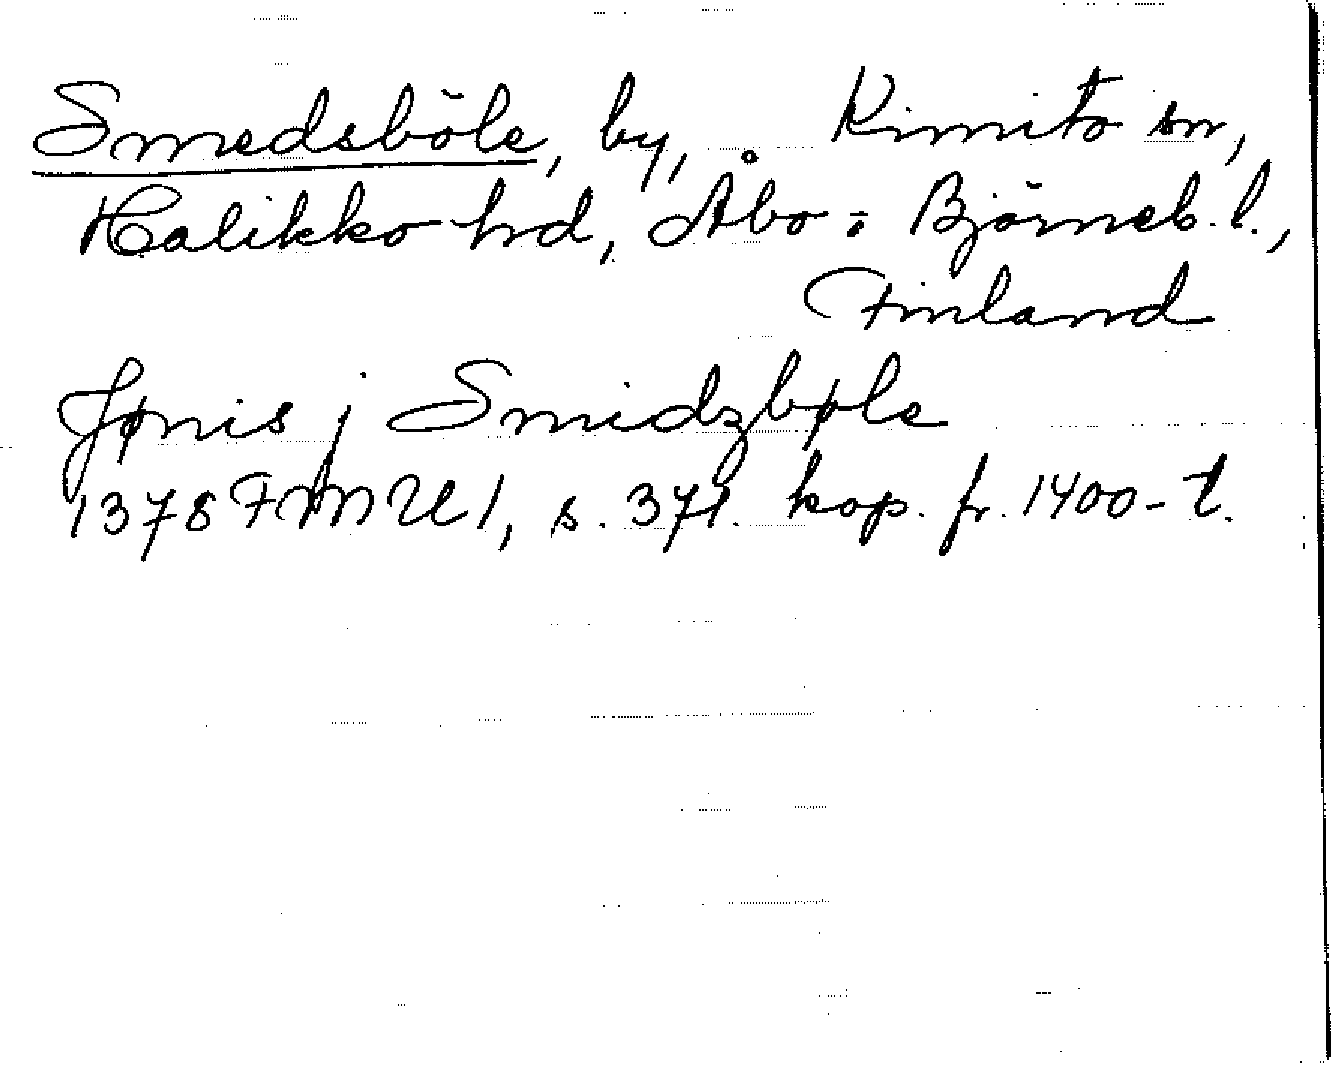 Smedsböle, by, Kimito sn,
Halikko hrd, Åbo- Björneb. l.,
Finland
Jønis j Smidzbøle
1378 FMU 1, s. 371. kop. fr. 1400-t.